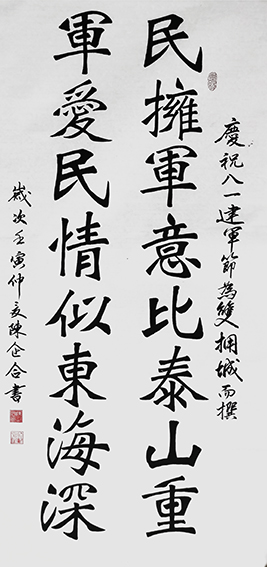 慶祝八一建軍節為雙擁城而撰
民擁軍意比泰山重
軍愛民情似東海深
歲次壬寅仲夏陳企合書